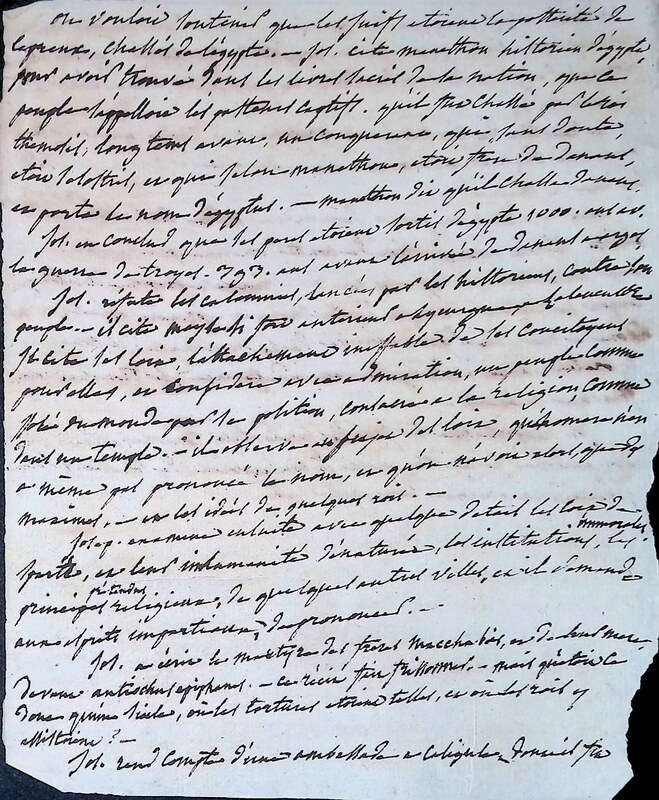 on vouloit soutenir que les juifs etoient la postérité de
lepreux, chassés de l'egypte. — Jos. cite manethon historien d'égypte
pour avoir trouvé dans les livres sacrés de la nation, que ce
peuple s'appelloit les pasteurs captifs. qu'il fut chassé par le roi
themosis, longtems avant un conquerant, qui, sans doute,
etoit sesostris, et qui selon manethon, etoit frere de danaus,
et porta le nom d'égyptus. — manethon dit qu'il chassa danaus.
Jos. en conclud que ses peres etoient sortis d'égypte 1000. ans av.
la guerre de troyes. 393. ans avant l'arrivée de danaus a argos
Jos. réfute les calomnies, lancées par les historiens, contre son
peuple. — il cite moyse si fort anterieur a lycurgue, a
Il cite ses loix, l'attachement ineffable de ses concitoyens
pour elles, et considere avec admiration, un peuple comme
isolé du monde par sa position, consacré a la religion, comme
dans un temple. — il observe au sujet des loix, qu'homere n'en
a même pas prononcé le nom, et qu'on ne voit alors, que des
maximes, — et les idées de quelques rois. —
Josep. examine ensuite avec quelque detail les loix de
sparte, et leur inhumanité dénaturée, les institutions, les immorales
principes prétendus religieux, de quelques autres villes, et il demande
aux esprits impartiaux, de prononcer. —
Jos. a écrit le martyre des freres macchabées, et de leur mere,
devant antiochus epiphanes. — ce récit fait frissonner. — mais qu'étoit ce
donc qu'un siecle, où les tortures etoient telles, et où les rois y
assistoient? —
Jos. rend compte d'une ambassade a caligula, dont il fut